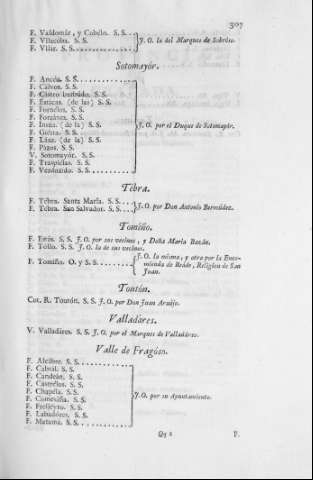 307
F. Valdomár, y Cobélo. S. S.
F. Vilacóba. S. S.
F. Vilár. S. S.
J. O. la del Marques de Sobróso.
Sotomayór.
F. Ancéu. S. S.
F. Calvos. S. S.
F. Castro S. S.
F. Esticas. (de las) S. S.
F. Fornélos. S. S.
F. Forzánes. S. S.
F. Insua. (de la) S. S.
F. S. S.
F. Láxe. (de la) S. S.
F. Pazos. S. S.
V. Sotomayór. S. S.
F. Traspiélas. S. S.
F. S. S.
J. O. por el Duque de Sotomayór.
Tébra.
F. Tébra. Santa María. S. S.
F. Tébra. San Salvador. S. S.
J. O. por Don Antonio Bermúdez.
Tomiño.
F. S. S. J. O. por sus vecinos, y Doña María Bazán.
F. Tollo. S. S. J. O. la de sus vecinos.
F. Tomiño. O. y S. S.
J. O. la misma, y otra por la Enco-
mienda de Beáde, Religion de San
Juan.
Toutón.
Cot. R. Toutón. S. S. J. O. por Don Juan Araújo.
Valladáres.
V. Valladáres. S. S. J. O. por el Marques de Valladáres.
Valle de Fragóso.
F. Alcábre. S. S.
F. Cabrál. S. S.
F. Candeán. S. S.
F. Castrélos. S. S.
F. Chapéla. S. S.
F. Comesáña. S. S.
F. Freixéyro. S. S.
F. Labadóres. S. S.
F. Matamá. S. S.
J. O. por su Ayuntamiento.
Qq 2
F.